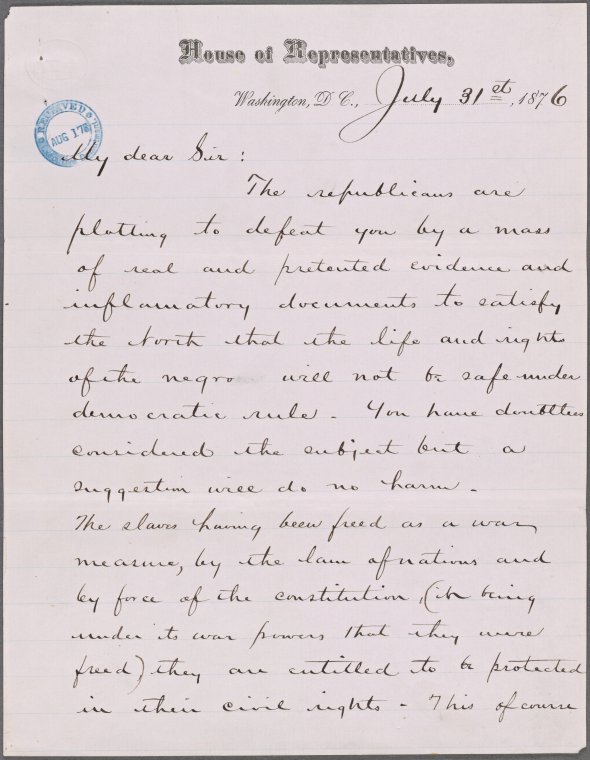 House of Representatives,
Washington, D. C., July 31st, 1876
RECEIVED
AUG 1 76
My dear Sir:
The republicans are
plotting to defeat you by a mass
of real and pretented evidence and
inflamatory documents to satisfy
the North that the life and rights
of the negro will not be safe under
democratic rule. You have doubttless
considered the subject but a
suggestion will do no harm.
The slaves having been freed as a war
measure, by the law of nations and
by force of the constitution, (it being
under its war powers that they were
freed) they are entitled to be protected
in their civil rights. This of course